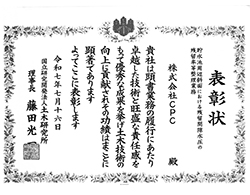 表彰状
貯水池周辺斜面における残留間隙水圧の
残留率等整理業務
株式会社CPC 殿
貴社は頭書業務の履行にあたり
卓越した技術と旺盛な責任感を
もって優秀な成果を挙げ土木技術の
向上に貢献されその功績はまことに
顕著であります
よってここに表彰します
令和七年七月十六日
国立研究開発法人土木研究所
理事長 藤田光一